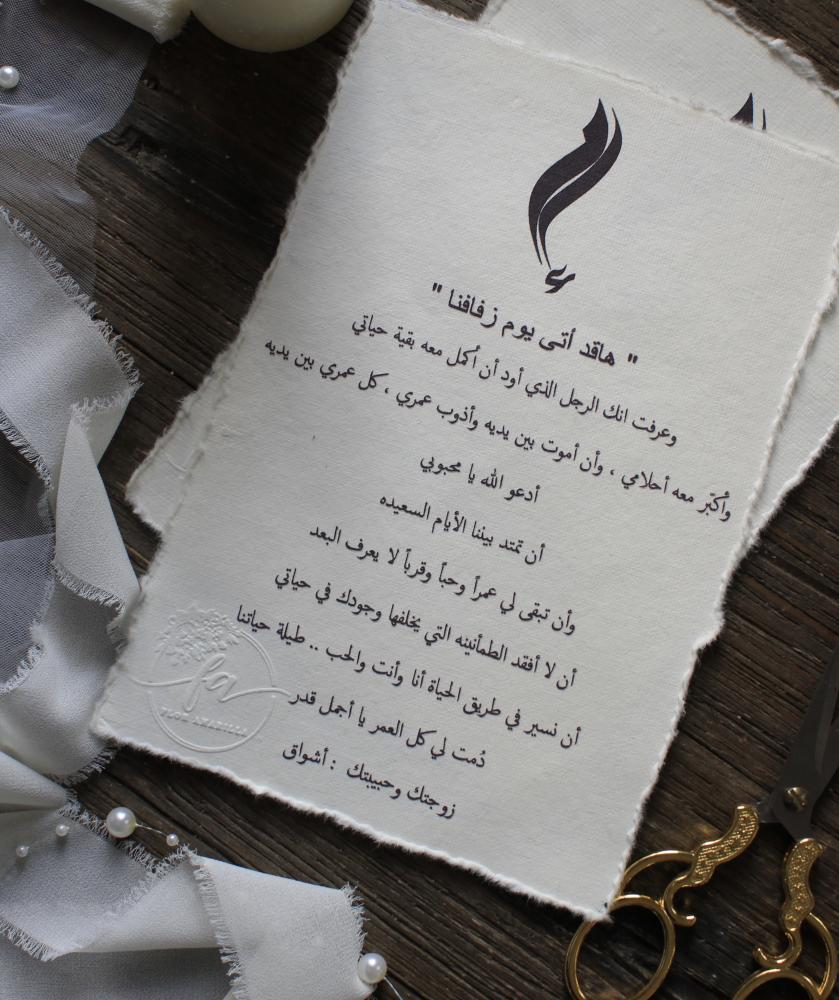 " هاقد أتى يوم زفافنا "
وعرفت انك الرجل الذي أود أن أكمل معه بقية حياتي
وأكبّر معه أحلامي ، وأن أموت بين يديه وأذوب عمري ، كل عمري بين يديه
أدعو الله يا محبوبي
أن تمتد بيننا الأيام السعيده
وأن تبقى لي عمراً وحباً وقرباً لا يعرف البعد
أن لا أفقد الطمأنينه التي يخلفها وجودك في حياتي
أن نسير في طريق الحياة أنا وأنت والحب .. طيلة حياتنا
دُمت لي كل العمر يا أجمل قدر
زوجتك وحبيبتك : أشواق
fa